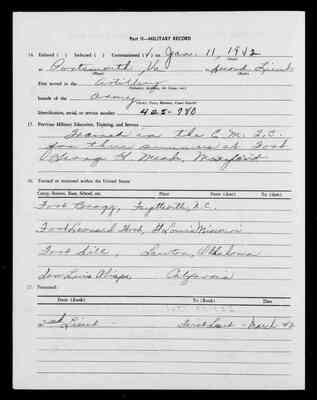 Part II—MILITARY RECORD
14. Enlisted ( ) Inducted ( ) Commissioned (√) on Jan. 11, 1942
at Portsmouth, Va as Second Lieut.
(Place) (Rank)
First served in the artillery
branch of the army
(Army, Navy, Marines, Coast Guard)
Identification, serial, or service number
15. Previous Military Education, Training, and Service
Trained in the C. M. T. C.
for three summers at Fort
George G Meade, Maryland
16. Trained or stationed within the United States:
Camp, Station, Base, School, etc. Place From (Date) To (Date)
Fort Bragg, Fayetteville, N.C.
Fort Leonard Wood, St Louis Missouri
Fort Sill, Lawton, Oklahoma
San Luis Obispo, California
17. Promoted:
From (Rank) To (Rank) Date
2nd Lieut - First Lieut - March 42